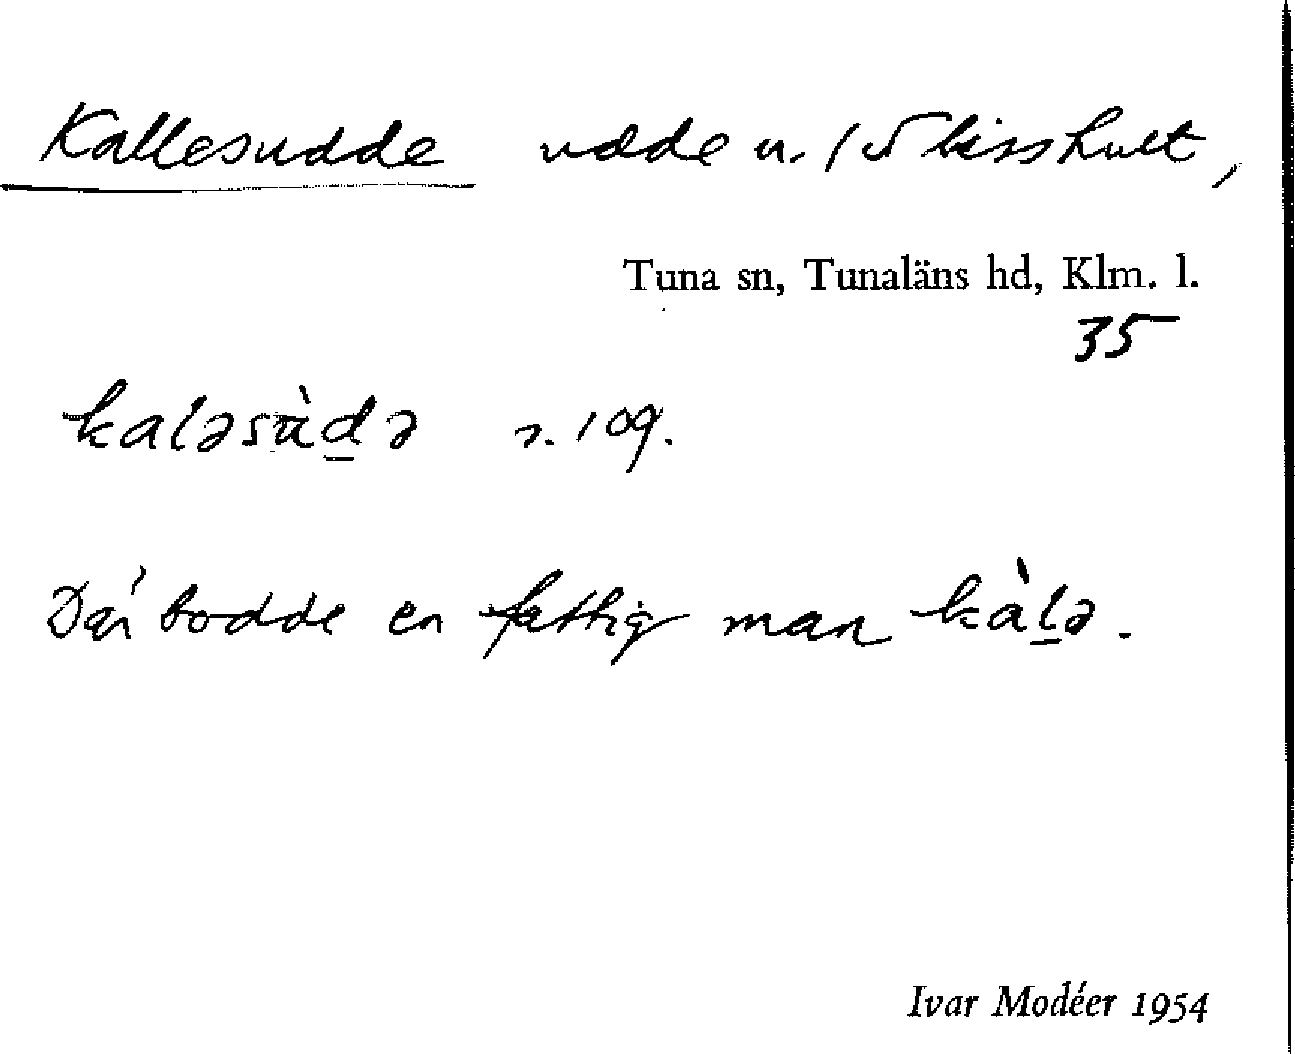 Kallesudde udde u.
Tuna sn, Tunaläns hd, Klm. l.
35
kaləsùd̲ə s. 109.
Där bodde en fattig man kàl̲ə.
Ivar Modéer 1954